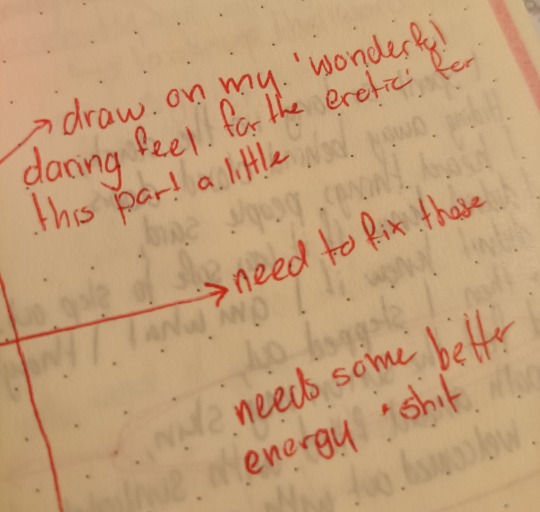 draw on my 'wonderful
daring feel for the erotic' for
this part a little
need to fix these
needs some better
energy · shit